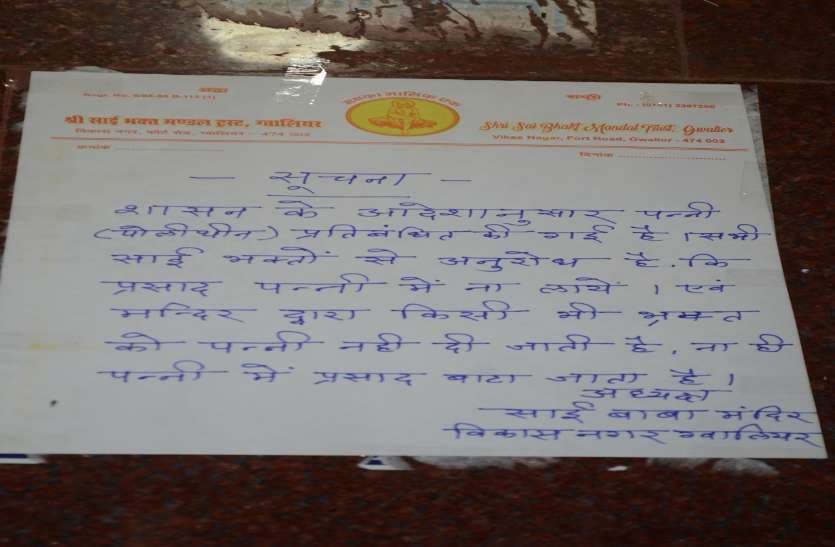 श्रद्धा सबूरी
श्री साई भक्त मण्डल ट्रस्ट, ग्वालियर
विकास नगर, फोर्ट रोड, ग्वालियर - 474 003
सबका मालिक एक
Shri Sai Bhakt Mandal Trust, Gwalior
Vikas Nagar, Fort Road, Gwalior - 474 003
क्रमांक दिनांक
— सूचना —
शासन के आदेशानुसार पन्नी
(पोलीथीन) प्रतिबंधित की गई है । सभी
साई भक्तों से अनुरोध है. कि
प्रसाद पन्नी में ना लायें । एवं
मन्दिर द्वारा किसी भी भक्त
को पन्नी नही दी जाती है, ना ही
पन्नी में प्रसाद बाटा जाता है ।
अध्यक्ष
साई बाबा मंदिर
विकास नगर ग्वालियर